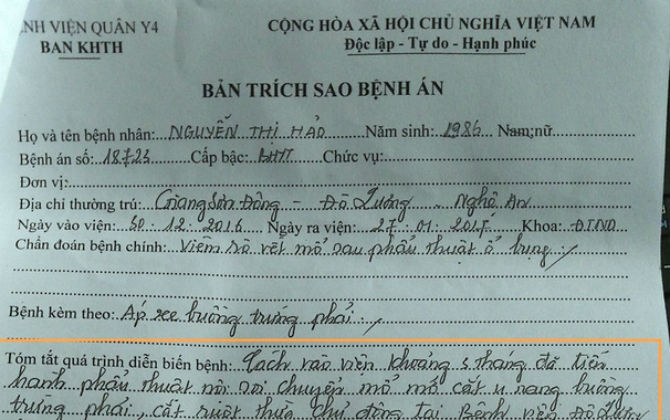 NH VIỆN QUÂN Y4 CỘNG HÒA XÃ HỘI CHỦ NGHĨA VIỆT NAM
BAN KHTH Độc lập - Tự do - Hạnh phúc
BẢN TRÍCH SAO BỆNH ÁN
Họ và tên bệnh nhân: NGUYỄN THỊ HẢO Năm sinh: 1986 Nam; nữ
Bệnh án số: 18723 Cấp bậc: BHYT Chức vụ:
Đơn vị:
Địa chỉ thường trú: Giang Sơn Đông - Đô Lương - Nghệ An
Ngày vào viện: 30-12-2016 Ngày ra viện: 27-01-2017 Khoa:
Chẩn đoán bệnh chính: Viêm rò vết mổ sau phẫu thuật ổ bụng /
Bệnh kèm theo: Áp xe buồng trứng phải /
Tóm tắt quá trình diễn biến bệnh: Cách vào viện khoảng 5 tháng đã tiến
hành phẫu thuật nội soi chuyển mổ mở cắt u nang buồng
trứng phải, cắt ruột thừa chủ động tại Bệnh viện Đô Lương